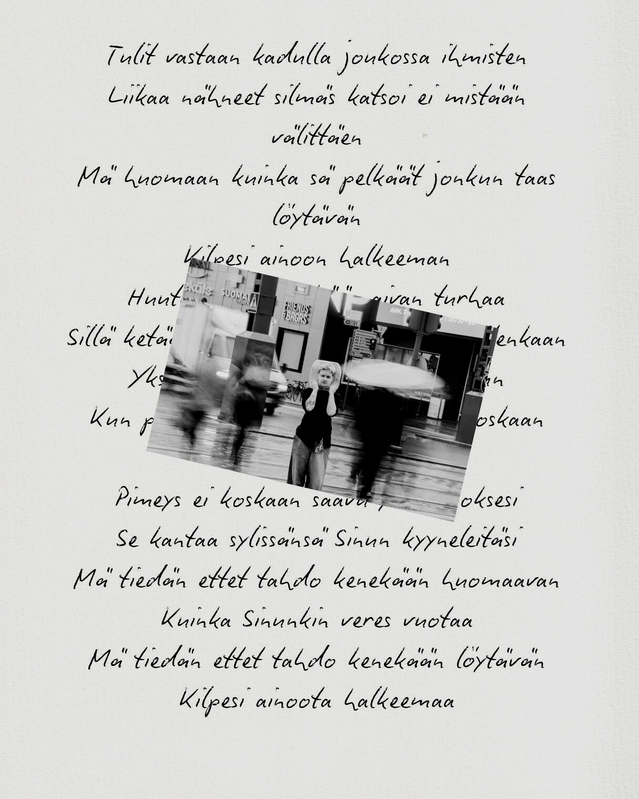 Tulit vastaan kadulla joukossa ihmisten
Liikaa nähneet silmäs katsoi ei mistään
välittäen
Mä huomaan kuinka sä pelkäät jonkun taas
löytävän
Kilpesi ainoon halkeeman
aivan turhaa
Sillä
Kun
Pimeys ei koskaan
Se kantaa sylissänsä Sinun kyyneleitäsi
Mä tiedän ettet tahdo kenekään huomaavan
Kuinka Sinunkin veres vuotaa
Mä tiedän ettet tahdo kenekään löytävän
Kilpesi ainoota halkeemaa
FRIENDS